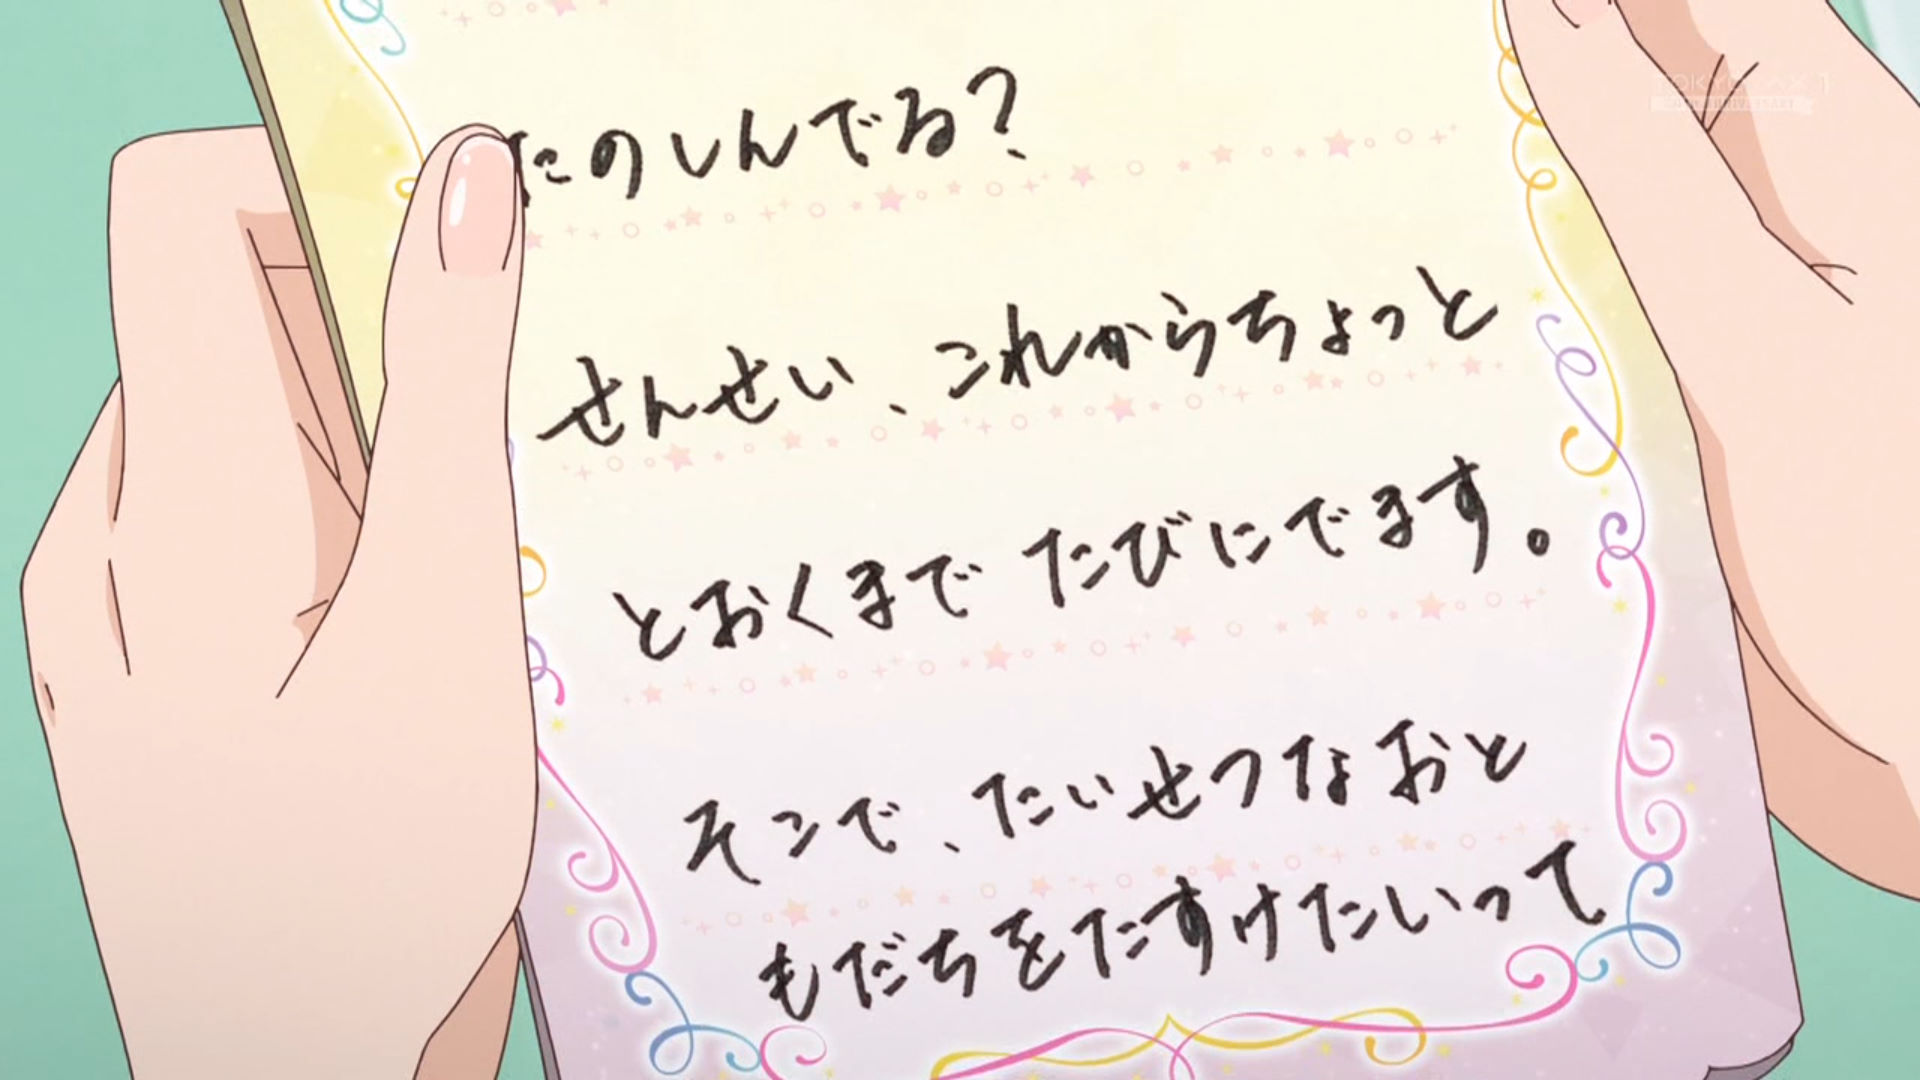 たのしんでる？
せんせい、これからちょっと
とおくまで たびにでます。
そこで、たいせつなおと
もだちをたすけたいって
TOKYO MX1